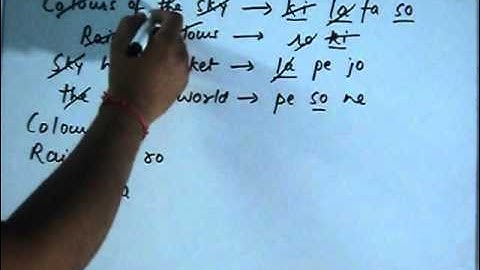 Colours of the sky → ki la fa so
Rai colours → ro ki
Sky ket → la pe jo
the world → pe so ne
Colou
Rai ro